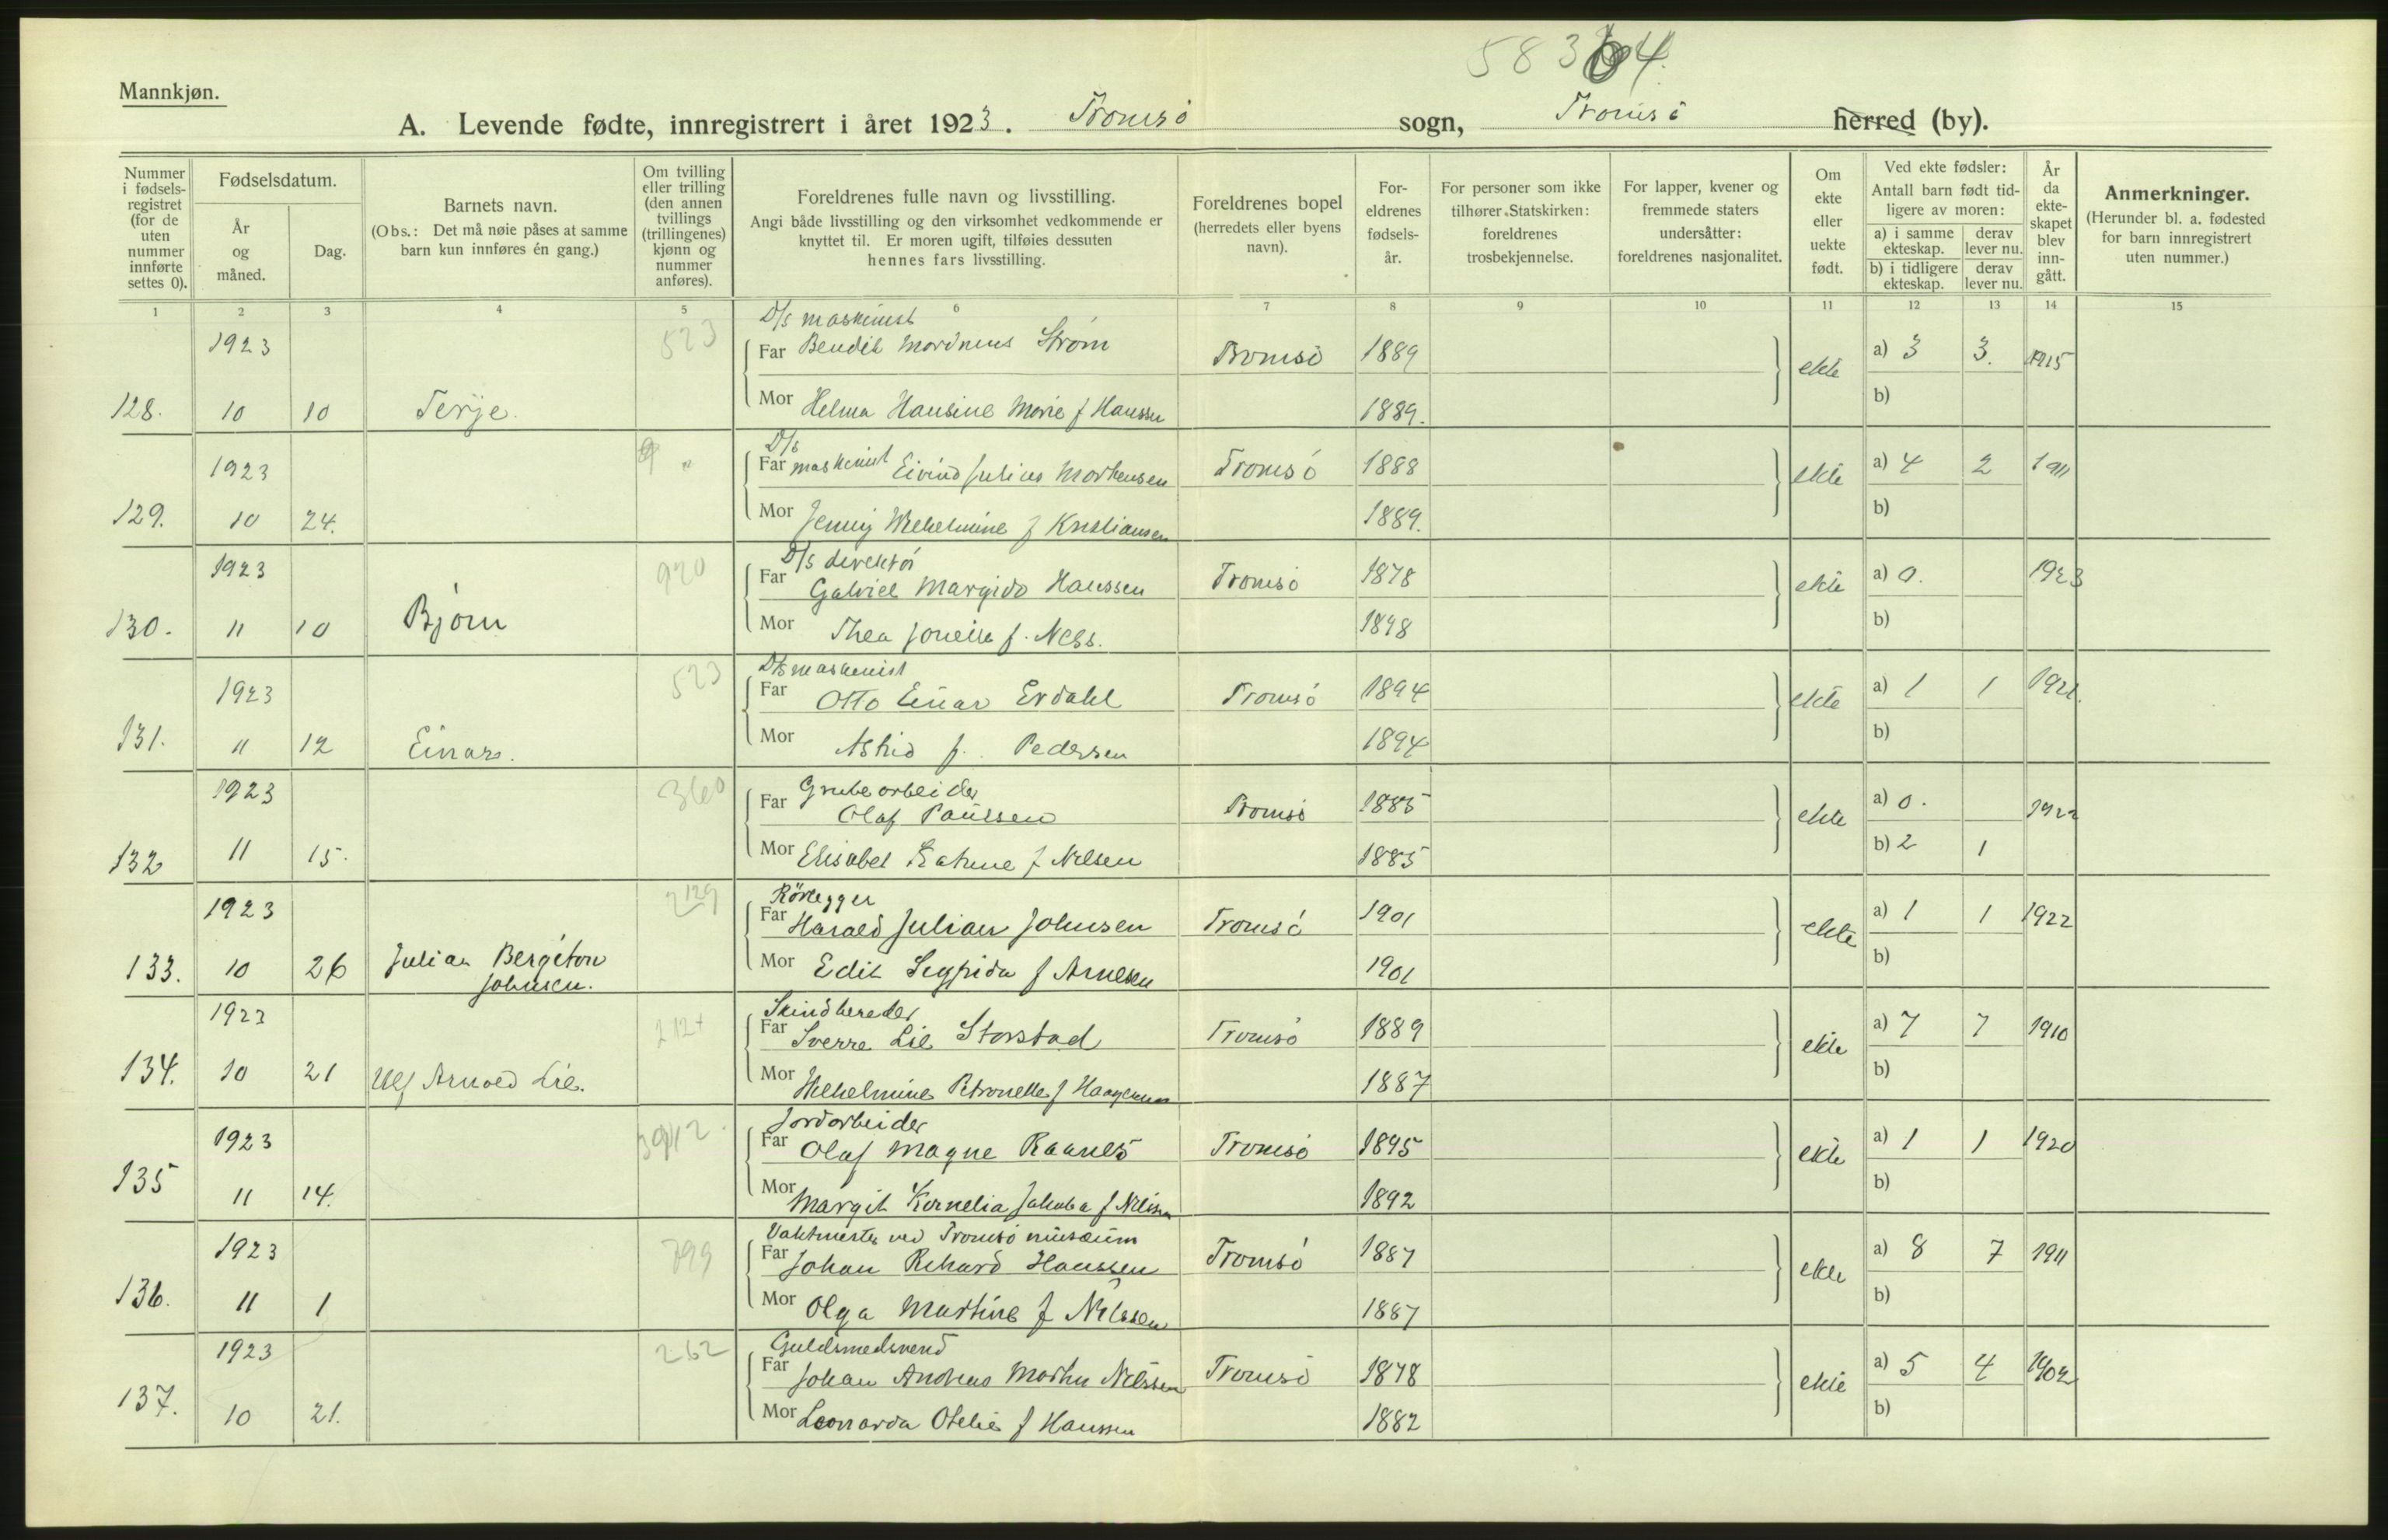 58364.
Mannkjøn.
A. Levende fødte, innregistrert i året 1923. Tromsö sogn, Tromsö herred (by).
Nummer i fødsels-registret (for de uten nummer innførte settes 0).
Fødselsdatum.
År og måned.
Dag.
Barnets navn.
(Obs.: Det må nøie påses at samme barn kun innføres én gang.)
Om tvilling eller trilling (den annen tvillings (trillingenes) kjønn og nummer anføres).
Foreldrenes fulle navn og livsstilling.
Angi både livsstilling og den virksomhet vedkommende er knyttet til. Er moren ugift, tilføies dessuten hennes fars livsstilling.
Foreldrenes bopel (herredets eller byens navn).
For-eldrenes fødsels-år.
For personer som ikke tilhører Statskirken: foreldrenes trosbekjennelse.
For lapper, kvener og fremmede staters undersåtter: foreldrenes nasjonalitet.
Om ekte eller uekte født.
Ved ekte fødsler:
Antall barn født tid-ligere av moren:
a) i samme ekteskap. derav lever nu.
b) i tidligere ekteskap. derav lever nu.
År da ekte-skapet blev inn-gått.
Anmerkninger.
(Herunder bl. a. fødested for barn innregistrert uten nummer.)
1 2 3 4 5 6 7 8 9 10 11 12 13 14 15
D/s maskinist
1923 523 Far Bendik Strøm Tromsö 1889 ekte a) 3 3. 1915
128. 10 10 Terje. Mor Helma Hansine Marie f Hanssen 1889. b)
D/s
1923 " Far maskinist Eivind Julius Mortensen Tromsö 1888 ekte a) 4 2 1911
129. 10 24. Mor Jenny Wilhelmine f Kristiansen 1889. b)
D/s direktör
1923 920 Far Gabriel Margido Hanssen Tromsö 1878 ekte a) 0. 1923
130. 11 10 Bjørn Mor Thea f. Ness. 1898 b)
D/s maskinist
1923 523 Far Otto Einar Evdahl Tromsö 1894 ekte a) 1 1 1921.
131. 11 12 Einar. Mor Astrid f. Pedersen 1894 b)
Grubearbeider
1923 360 Far Olaf Paulsen Tromsö 1885 ekte a) 0. 1922
132 11 15. Mor Elisabet Katrine f Nilsen 1885 b) 2 1
Rörlegger
1923 2129 Far Harald Julian Johnsen Tromsö 1901 ekte a) 1 1 1922
133. 10 26 Julian Bergeton Johnsen. Mor Edit Sigfrida f Arnesen 1901 b)
Skindbereder
1923 212+ Far Sverre Lie Storstad Tromsö 1889 ekte a) 7 7 1910
134. 10 21 Ulf Arnold Lie. Mor Wilhelmine Petronelle f Haagensen 1887 b)
Jordarbeider
1923 Far Olaf Magne Raanes Tromsö 1895 ekte a) 1 1 1920
135 11 14. Mor Margit Kornelia Jakoba f Nilsen 1892 b)
Vaktmester ved Tromsö museum
1923 799 Far Johan Rikard Hanssen Tromsö 1887 ekte a) 8 7 1911
136. 11 1 Mor Olga Martine f Nilssen 1887 b)
Guldsmedsvend
1923 262 Far Johan Andreas Martin Nilssen Tromsö 1878 ekte a) 5 4 1902
137. 10 21. Mor Leonarda Otelie f Hanssen 1882 b)